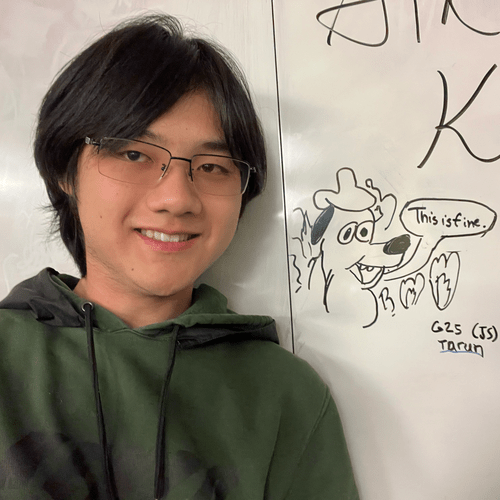 K
This is fine.
G25 (JS)
Tarun